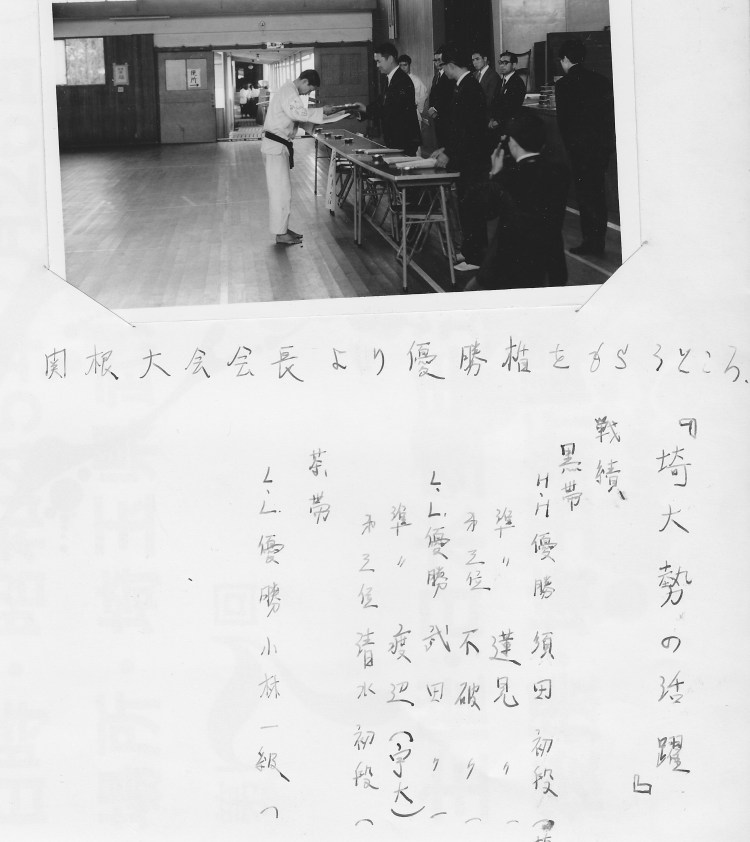 関根大会会長より優勝楯をもらうところ.
『埼大勢の活躍』
戦績、
黒帯
H.H優勝 須田 初段 (
準〃 蓮見 〃 (
㐧三位 不破 〃 (
L.L.優勝 武田 〃 (
準〃 渡辺(宇大)
㐧三位 清水 初段 (
茶帯
L.L.優勝 小林一級 (